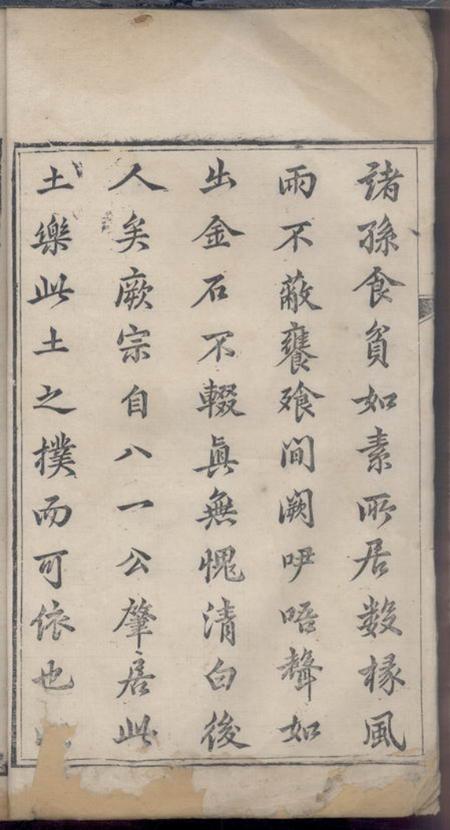 諸孫食貧如素所居数椽風
雨不蔽饔飱间闕吚唔聲如
出金石不輟真無愧清白後
人矣厥宗自八一公肇居此
土樂此土之樸而可依也